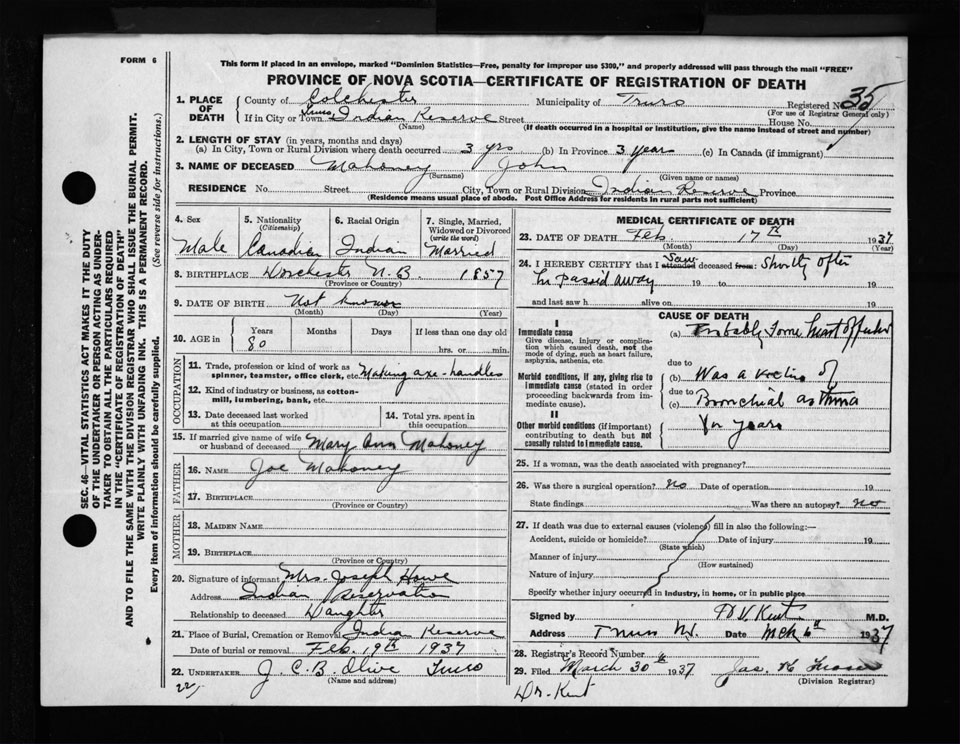 FORM 6
This form if placed in an envelope, marked "Dominion Statistics—Free, penalty for improper use $300," and properly addressed will pass through the mail "FREE"
PROVINCE OF NOVA SCOTIA—CERTIFICATE OF REGISTRATION OF DEATH
1. PLACE OF DEATH County of Colchester Municipality of Truro Registered No. 35
(For use of Registrar General only)
If in City or Town Truro, Indian Reserve Street House No.
(Name) (If death occurred in a hospital or institution, give the name instead of street and number)
2. LENGTH OF STAY (in years, months and days)
(a) In City, Town or Rural Division where death occurred 3 yrs (b) In Province 3 years (c) In Canada (if immigrant)
3. NAME OF DECEASED Mahoney John
(Surname) (Given name or names)
RESIDENCE No. Street City, Town or Rural Division Indian Reserve Province
(Residence means usual place of abode. Post Office Address for residents in rural parts not sufficient)
SEC. 46—VITAL STATISTICS ACT MAKES IT THE DUTY
OF THE UNDERTAKER OR PERSON ACTING AS UNDER-
TAKER TO OBTAIN ALL THE PARTICULARS REQUIRED
IN THE "CERTIFICATE OF REGISTRATION OF DEATH"
AND TO FILE THE SAME WITH THE DIVISION REGISTRAR WHO SHALL ISSUE THE BURIAL PERMIT.
WRITE PLAINLY WITH UNFADING INK. THIS IS A PERMANENT RECORD.
Every item of information should be carefully supplied. (See reverse side for instructions.)
4. Sex Male
5. Nationality (Citizenship) Canadian
6. Racial Origin Indian
7. Single, Married, Widowed or Divorced (write the word) Married
8. BIRTHPLACE Dorchester N.B 1857
(Province or Country)
9. DATE OF BIRTH Not known
(Month) (Day) (Year)
10. AGE in Years Months Days If less than one day old
80 hrs. or min.
OCCUPATION
11. Trade, profession or kind of work as
spinner, teamster, office clerk, etc. Making axe-handles
12. Kind of industry or business, as cotton-
mill, lumbering, bank, etc.
13. Date deceased last worked
at this occupation
14. Total yrs. spent in
this occupation
15. If married give name of wife
or husband of deceased Mary Ann Mahoney
FATHER
16. NAME Joe Mahoney
17. BIRTHPLACE
(Province or Country)
MOTHER
18. MAIDEN NAME
19. BIRTHPLACE
(Province or Country)
20. Signature of informant Mrs. Joseph Howe
Address Indian Reservation
Relationship to deceased Daughter
21. Place of Burial, Cremation or Removal India Reserve
Date of burial or removal Feb. 19th 1937
22. UNDERTAKER J. C. B. Olive Truro
(Name and address)
22/
MEDICAL CERTIFICATE OF DEATH
23. DATE OF DEATH Feb. 17th 1937
(Month) (Day) (Year)
24. I HEREBY CERTIFY that I attended saw deceased from: Shortly after
he passed away 19 to 19
and last saw h alive on 19
CAUSE OF DEATH
I
Immediate cause
Give disease, injury or complica-
tion which caused death, not the
mode of dying, such as heart failure,
asphyxia, asthenia, etc.
(a) Probably some heart
due to
Morbid conditions, if any, giving rise to
immediate cause (stated in order
proceeding backwards from im-
mediate cause).
(b) Was a victim of
due to
(c) Bronchial asthma
II
Other morbid conditions (if important)
contributing to death but not
causally related to immediate cause.
for years
25. If a woman, was the death associated with pregnancy?
26. Was there a surgical operation? no Date of operation 19
State findings Was there an autopsy? no
27. If death was due to external causes (violence) fill in also the following:—
Accident, suicide or homicide? Date of injury 19
(State which)
Manner of injury
(How sustained)
Nature of injury
Specify whether injury occurred in industry, in home, or in public place
Signed by D V. Kent M.D.
Address Truro N.S. Date Mch 6th 1937
28. Registrar's Record Number
29. Filed March 30th 1937 Jas.
(Division Registrar)
Dr. Kent